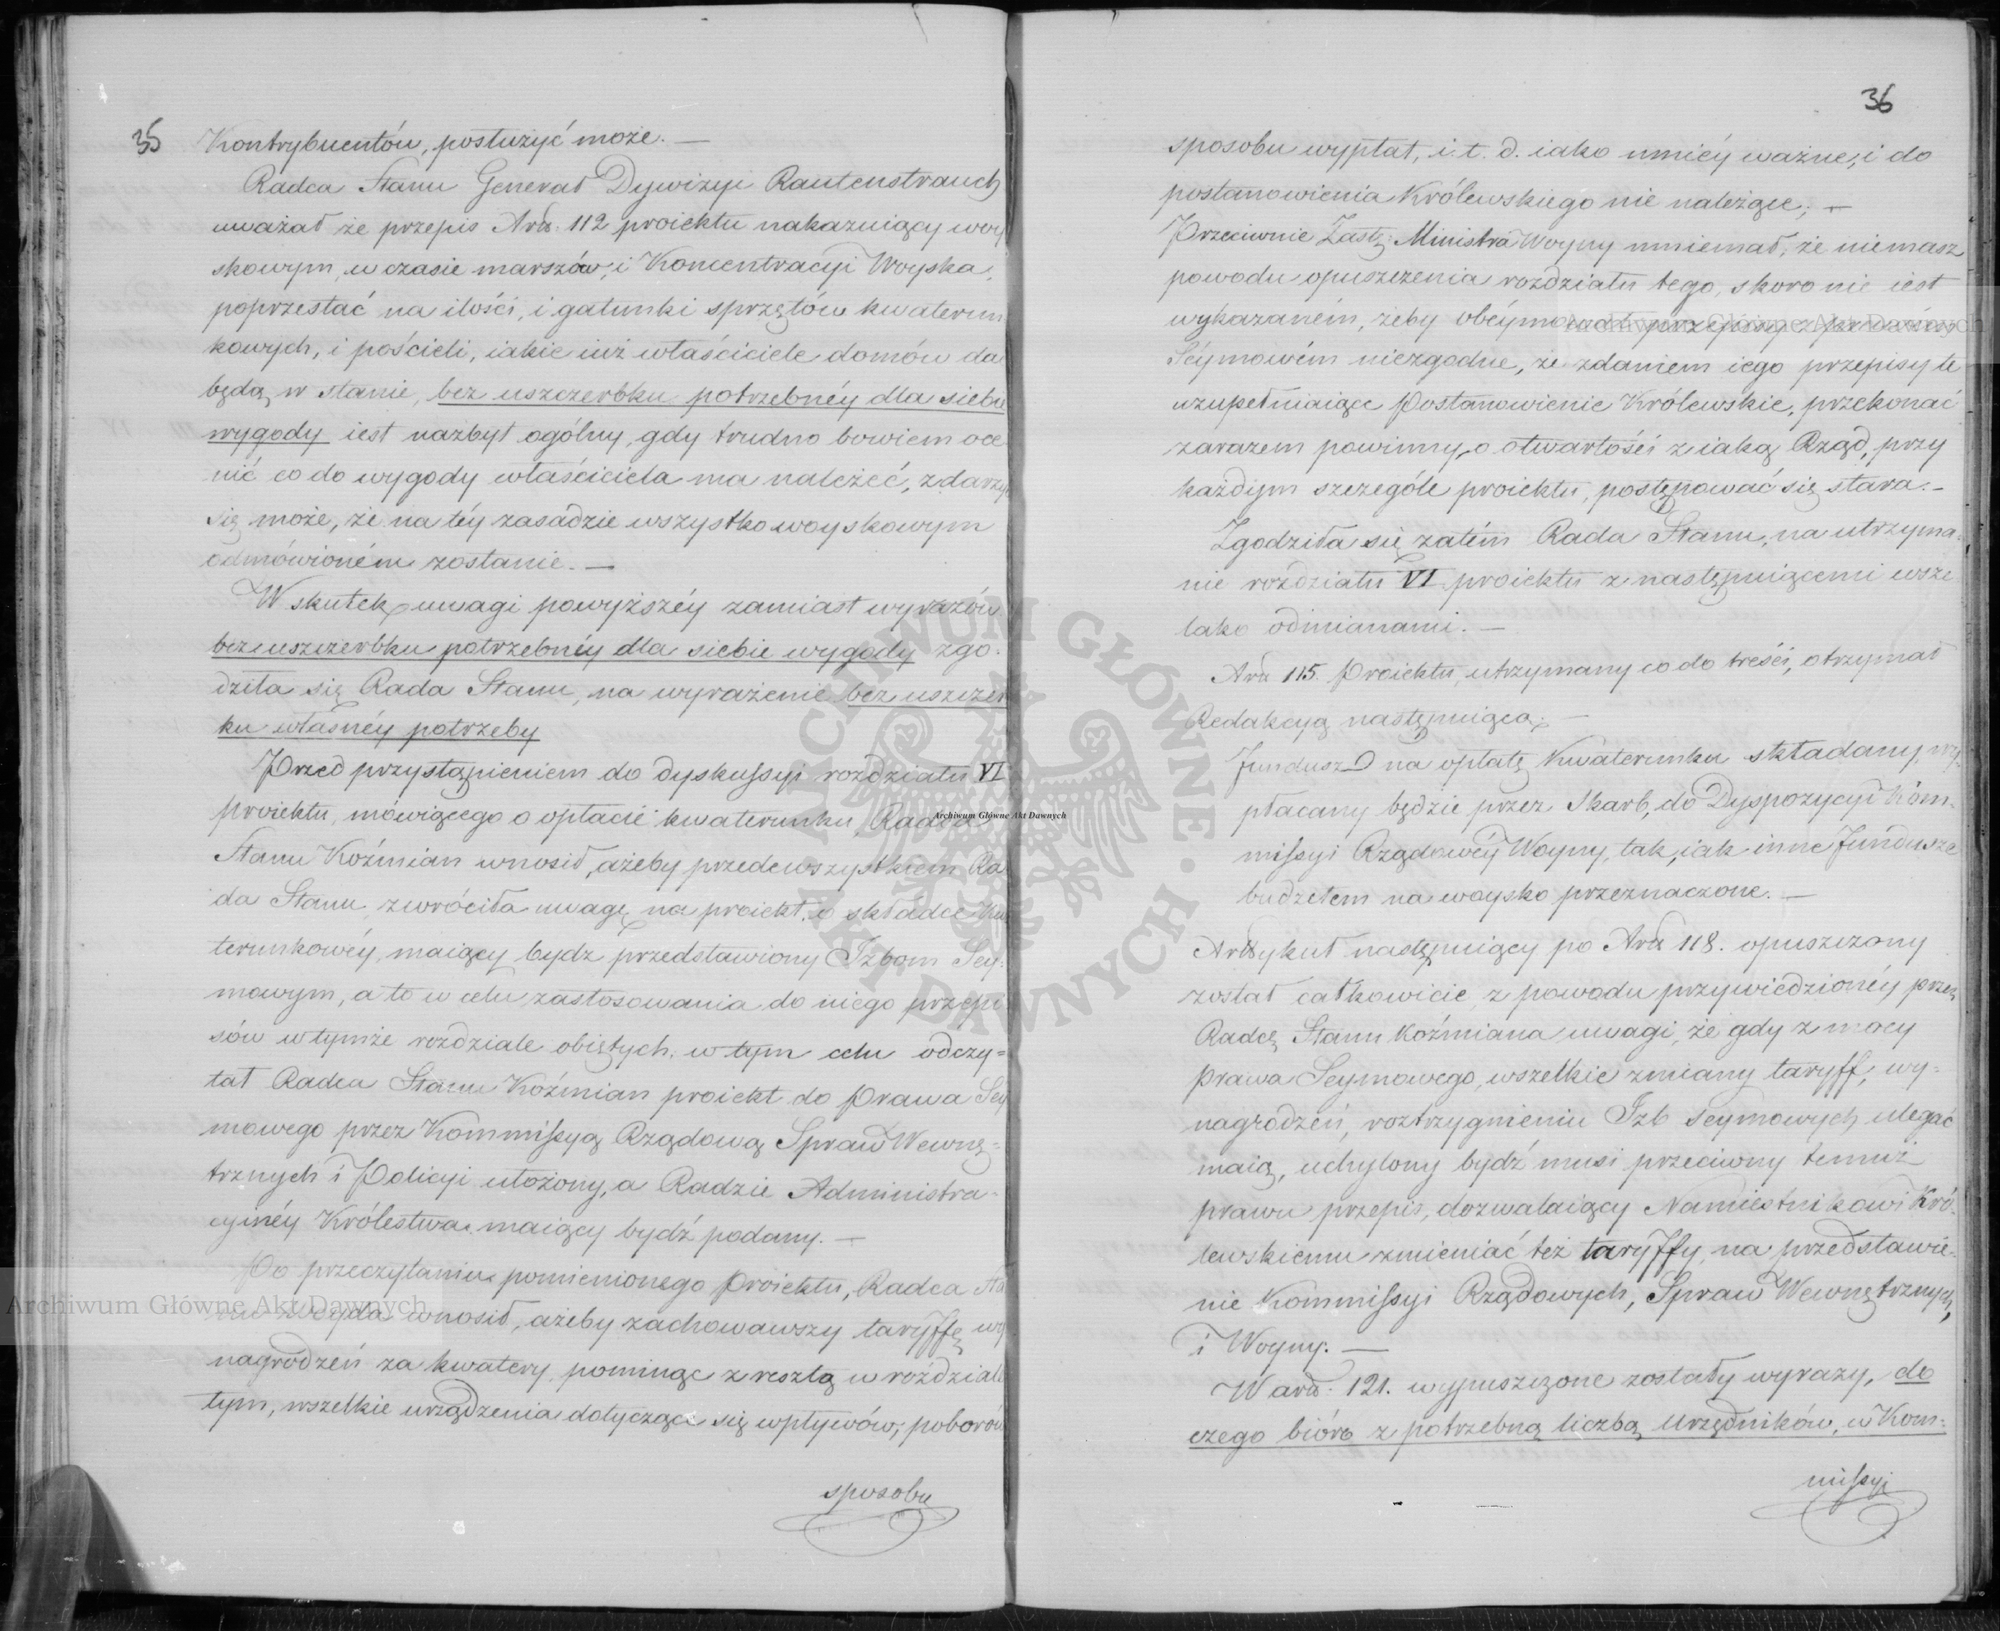 35
Kontrybuentów, posłużyć może. —
Radca Stanu Generał Dywizyi Rautenstrauch
uważał że przepis Art. 112 proiektu nakazuiący woy
skowym, w czasie marszów, i Koncentracyi Woyska,
poprzestać na ilości, i gatunki sprzętów kwaterun
kowych, i pościeli, iakie iuż właściciele domów dać
będą w stanie, bez uszczerbku potrzebnéy dla siebie
wygody iest nazbyt ogólny, gdy trudno bowiem oce
nić co do wygody właściciela ma należeć, zdarzyć
się może, że na téy zasadzie wszystko woyskowym
odmówioném zostanie. —
W skutek uwagi powyższéy zamiast wyrazów
bez uszczerbku potrzebnéy dla siebie wygody zgo-
dziła się Rada Stanu, na wyrażenie bez uszczerb
ku własnéy potrzeby
Przed przystąpieniem do dyskussyi rozdziału VI
proiektu, mówiącego o opłacie kwaterunku, Radca
Stanu Koźmian wnosił, ażeby przedewszystkiem Ra
da Stanu zwróciła uwagę na proiekt, o składce kwa
terunkowéy, maiący bydz przedstawiony Izbom Sey-
mowym, a to w celu zastosowania do niego przepi
sów w tymże rozdziale obiętych. w tym celu odczy=
tał Radca Stanu Koźmian proiekt do Prawa Sey
mowego przez Kommissyą Rządową Spraw Wewnę=
trznych i Policyi ułożony, a Radzie Administra-
cyinéy Królestwa maiący bydź podany. —
Po przeczytaniu pomienionego Proiektu, Radca Sta
nu wnosił, ażeby zachowawszy taryffę wy
nagrodzeń za kwatery, pominąć z resztą w rozdziale
tym, wszelkie urządzenia dotyczące się wpływów, poborów
sposobu
36
sposobu wypłat, i. t. d. iako mniéy ważne, i do
postanowienia Królewskiego nie należące; —
Przeciwnie Zastę: Ministra Woyny mniemał, że niemasz
powodu opuszczenia rozdziału tego, skoro nie iest
wykazaném, żeby obéymował przepisy z prawem
Séymowém niezgodne, że zdaniem iego przepisy te
uzupełniaiące Postanowienie Królewskie, przekonać
zarazem powinny, o otwartości z iaką Rząd, przy
każdym szczególe proiektu, postępować się stara. —
Zgodziła się zatém Rada Stanu, na utrzyma-
nie rozdziału VI proiektu z następuiącemi wsze
lako odmianami. —
Art 115. Proiektu, utrzymany co do treści, otrzymał
Redakcyą następuiącą: —
Fundusz na opłatę Kwaterunku składany, wy-
płacany będzie przez Skarb, do Dyspozycyi Kom-
missyi Rządowéy Woyny, tak, iak inne fundusze
budżetem na woysko przeznaczone. —
Artykuł następuiący po Art 118. opuszczony
został całkowicie, z powodu przywiedzionéy przez
Radcę Stanu Koźmiana uwagi, że gdy z mocy
Prawa Seymowego, wszelkie zmiany taryff, wy-
nagrodzeń, roztrzygnieniu Izb Seymowych ulegać
maią, uchylony bydź musi przeciwny temuż
prawu przepis, dozwalaiący Namiestnikowi Kró-
lewskiemu zmieniać też taryffy, na przedstawie-
nie Kommissyi Rządowych, Spraw Wewnętrznych,
i Woyny. —
W art. 121. wypuszczone zostały wyrazy, do
czego bióro z potrzebną liczbą Urzędników, w Kom=
missyi
Archiwum Główne Akt Dawnych
Archiwum Główne Akt Dawnych
Archiwum Główne Akt Dawnych
ARCHIWUM GŁÓWNE · AKT DAWNYCH ·